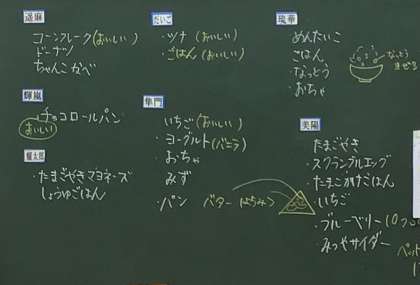 遥麻
コーンフレーク(おいしい)
ドーナツ
ちゃんこなべ
輝嵐
チョコロールパン
おいしい
耀太郎
・たまごやきマヨネーズ
しょうゆごはん
だいご
・ツナ(おいしい)
・ごはん(おいしい)
隼門
・いちご(おいしい)
・ヨーグルト(バニラ)
・おちゃ
みず
・パン バター はちみつ
琉華
めんたいこ
ごはん
・なっとう
・おちゃ
なっとう
まぜる
美陽
たまごやき
・スクランブルエッグ
・たまごかけごはん
・いちご
・ブルーベリー 10つぶ
・みつやサイダー
ペット